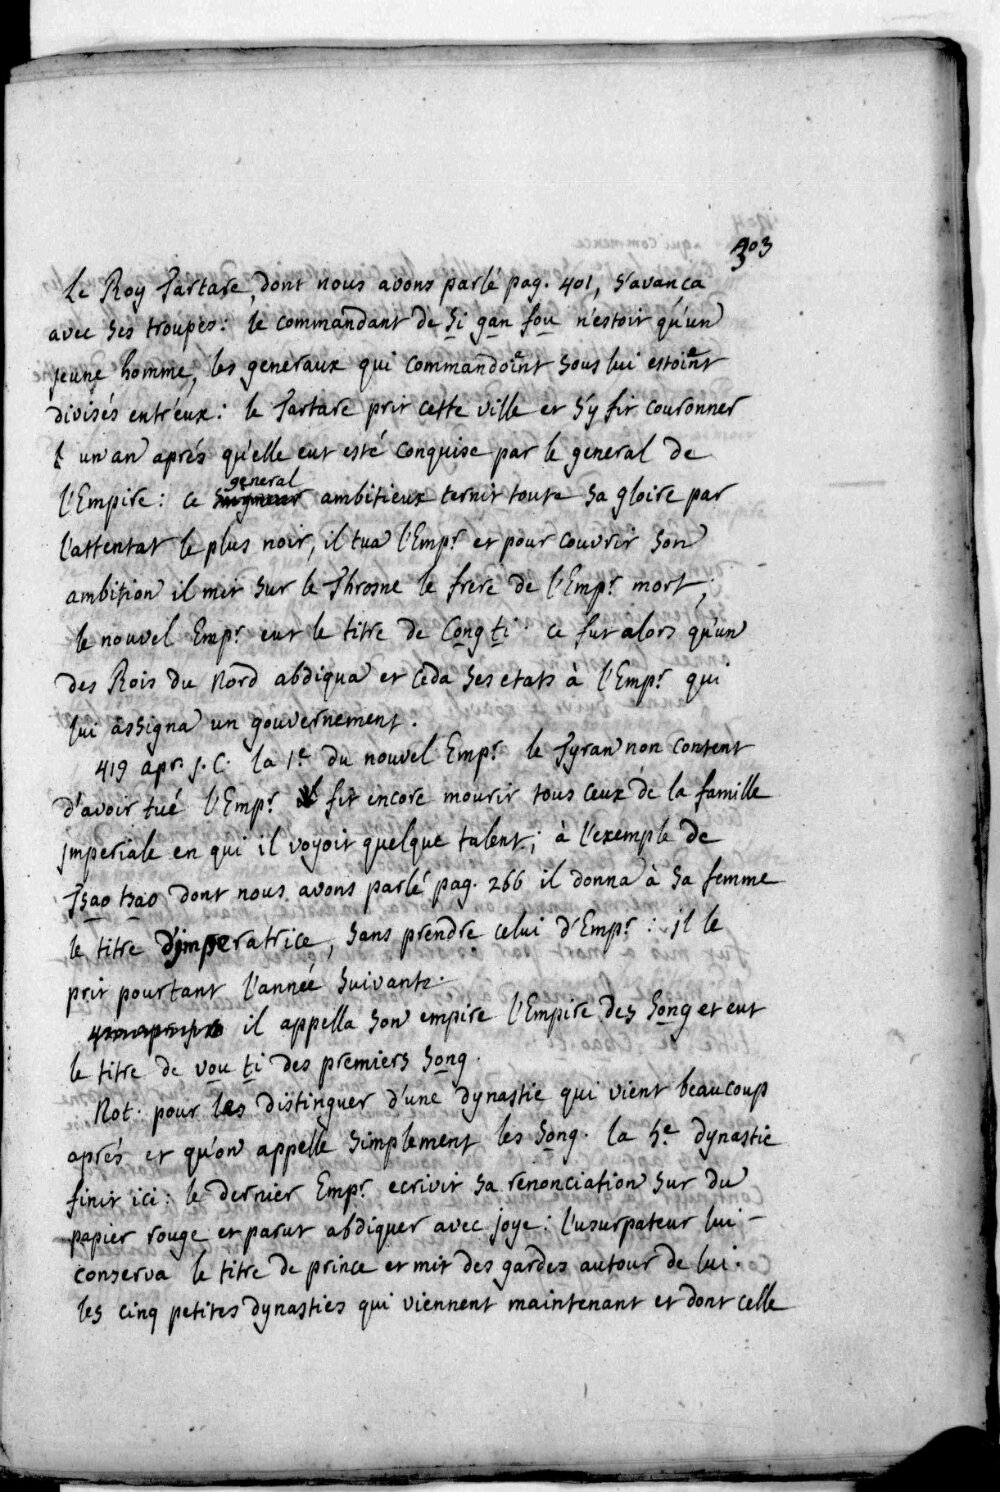 303
Le Roy Tartare, dont nous avons parlé pag. 401, s'avança
avec ses troupes: le commandant de Si gan fou n'estoit qu'un
jeune homme, les generaux qui commandoint sous lui estoint
divisés entr'eux: le Tartare prit cette ville et s'y fit couronner
un an aprés qu'elle eut esté conquise par le general de
l'Empire: ce general ambitieux ternit toute sa gloire par
l'attentat le plus noir, il tua l'Empr et pour couvrir son
ambition il mit sur le Throsne le frere de l'Empr mort;
le nouvel Empr eut le titre de Cong ti. ce fut alors qu'un
des Rois du Nord abdiqua et ceda ses etats à l'Empr qui
lui assigna un gouvernement.
419 apr. J.C. la 1e du nouvel Empr le Tyran non content
d'avoir tué l'Empr fit encore mourir tous ceux de la famille
jmperiale en qui il voyoit quelque talent; à l'exemple de
Tsao tsao dont nous avons parlé pag. 266 il donna à sa femme
le titre d'jmperatrice, sans prendre celui d'Empr: il le
prit pourtant l'année suivante.
il appella son empire l'Empire des Song et eut
le titre de vou ti des premiers Song.
Not. pour les distinguer d'une dynastie qui vient beaucoup
aprés et qu'on appelle simplement les Song. la 5e dynastie
finit ici: le dernier Empr ecrivit sa renonciation sur du
papier rouge et parut abdiquer avec joye: l'usurpateur lui
conserva le titre de prince et mit des gardes autour de lui.
les cinq petites dynasties qui viennent maintenant et dont celle